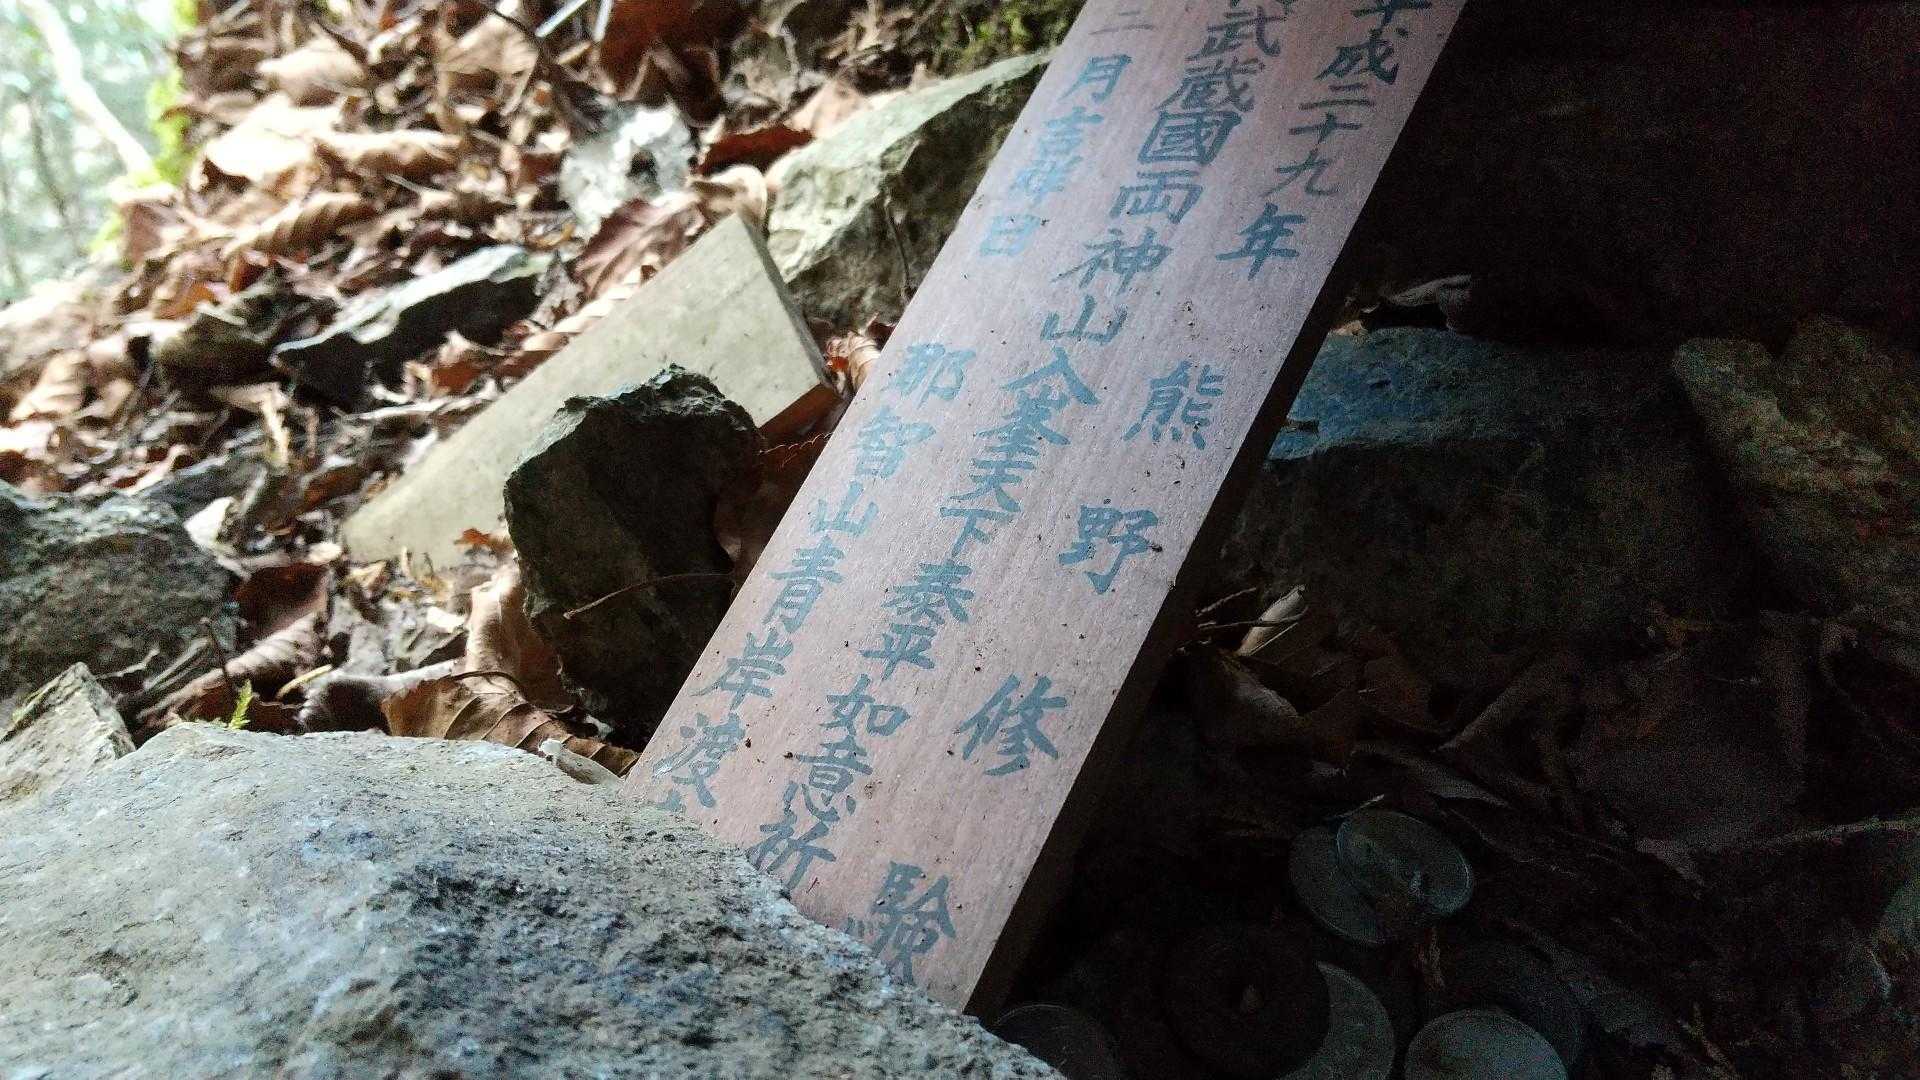 平成二十九年 熊野修験
武蔵國両神山入峯天下泰平如意祈
二月吉祥日 那智山青岸渡